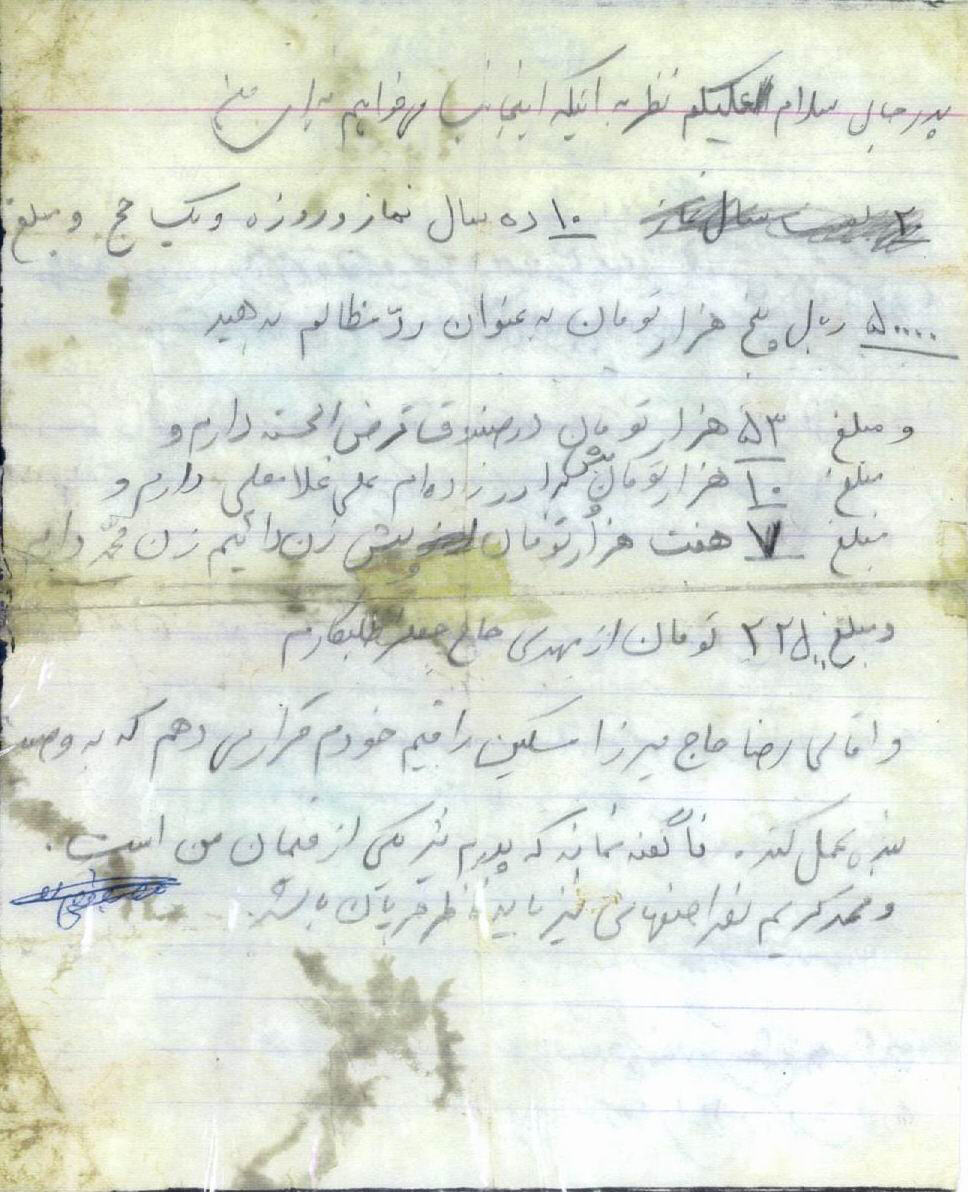 پدر جان سلام علیکم نظر به اینکه اینجانب می خواهم برای من
۱۰ ده سال نماز و روزه و یک حج و مبلغ
۵۰۰۰۰ ریال پنج هزار تومان به عنوان ردّ مظالم بدهید
و مبلغ ۵۳ هزار تومان در صندوق قرض الحسنه دارم و
مبلغ ۱۰ هزار تومان پیش برادر زاده ام علی غلامعلی دارم و
مبلغ ۷ هفت هزار تومان پیش زن دائیم زن محمّد دارم
و مبلغ ۲۲۵۰۰ تومان از مهدی حاج جعفر طلبکارم
و اقای رضا حاج میرزا مسکین را قیم خودم قرار می دهم که به وصیت
بنده عمل کند. نا گفته نماند که پدرم نیز یکی از قیمان من است.
و محمد کریم نصر اصفهانی نیز باید ناظر جریان باشد.